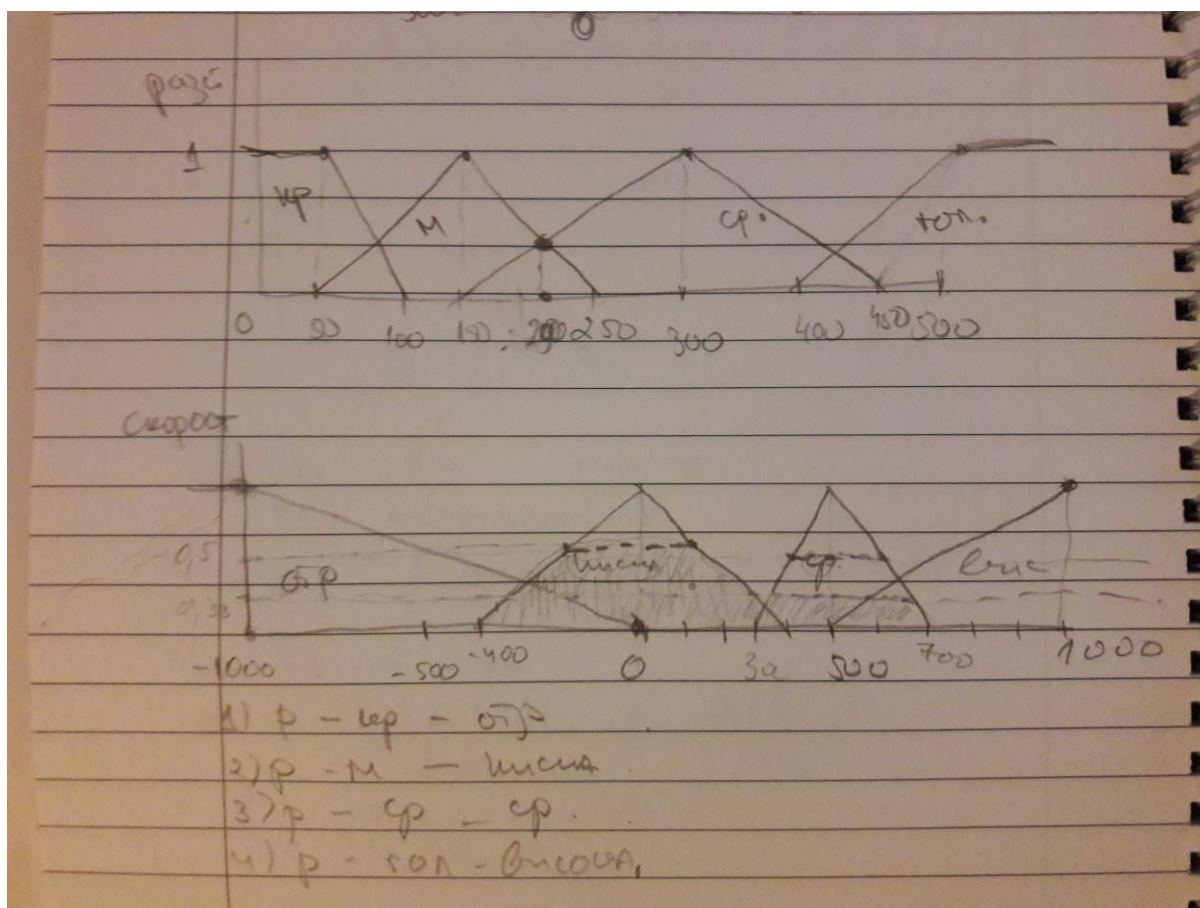 разст
1
кр м ср. гол.
0 50 100 150 200 250 300 400 450 500
скорост
0,5
0,33 отр ниска ср. вис
-1000 -500 -400 0 500 700 1000
1) р – кр – отр
2) р – м – ниска
3) р – ср – ср.
4) р – гол – висока